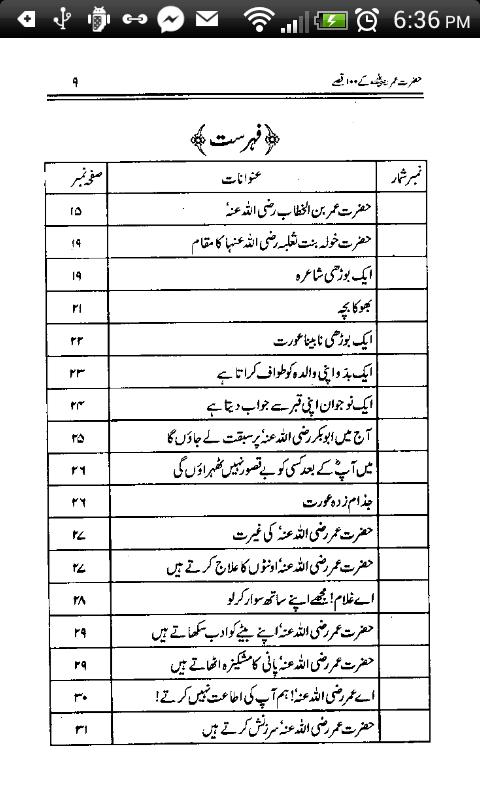 6:36 PM
حضرت عمرؓ کے ۱۰۰ قصے ۹
فہرست
نمبر شمار عنوانات صفحہ نمبر
حضرت عمر بن الخطاب رضی اللہ عنہٗ ۱۵
حضرت خولہ بنت ثعلبہ رضی اللہ عنہا کا مقام ۱۹
ایک بوڑھی شاعرہ ۱۹
بھوکا بچہ ۲۱
ایک بوڑھی نابینا عورت ۲۲
ایک بدّو اپنی والدہ کو طواف کراتا ہے ۲۳
ایک نوجوان اپنی قبر سے جواب دیتا ہے ۲۴
آج میں ابوبکر رضی اللہ عنہٗ پر سبقت لے جاؤں گا ۲۵
میں آپؓ کے بعد کسی کو بے قصور نہیں ٹھہراؤں گی ۲۶
جذام زدہ عورت ۲۶
حضرت عمر رضی اللہ عنہٗ کی غیرت ۲۷
حضرت عمر رضی اللہ عنہٗ اونٹوں کا علاج کرتے ہیں ۲۷
اے غلام! مجھے اپنے ساتھ سوار کرلو ۲۸
حضرت عمر رضی اللہ عنہٗ اپنے بیٹے کو ادب سکھاتے ہیں ۲۹
حضرت عمر رضی اللہ عنہٗ پانی کا مشکیزہ اٹھاتے ہیں ۲۹
اے عمر رضی اللہ عنہٗ! ہم آپ کی اطاعت نہیں کرتے! ۳۰
حضرت عمر رضی اللہ عنہٗ سرزنش کرتے ہیں ۳۱